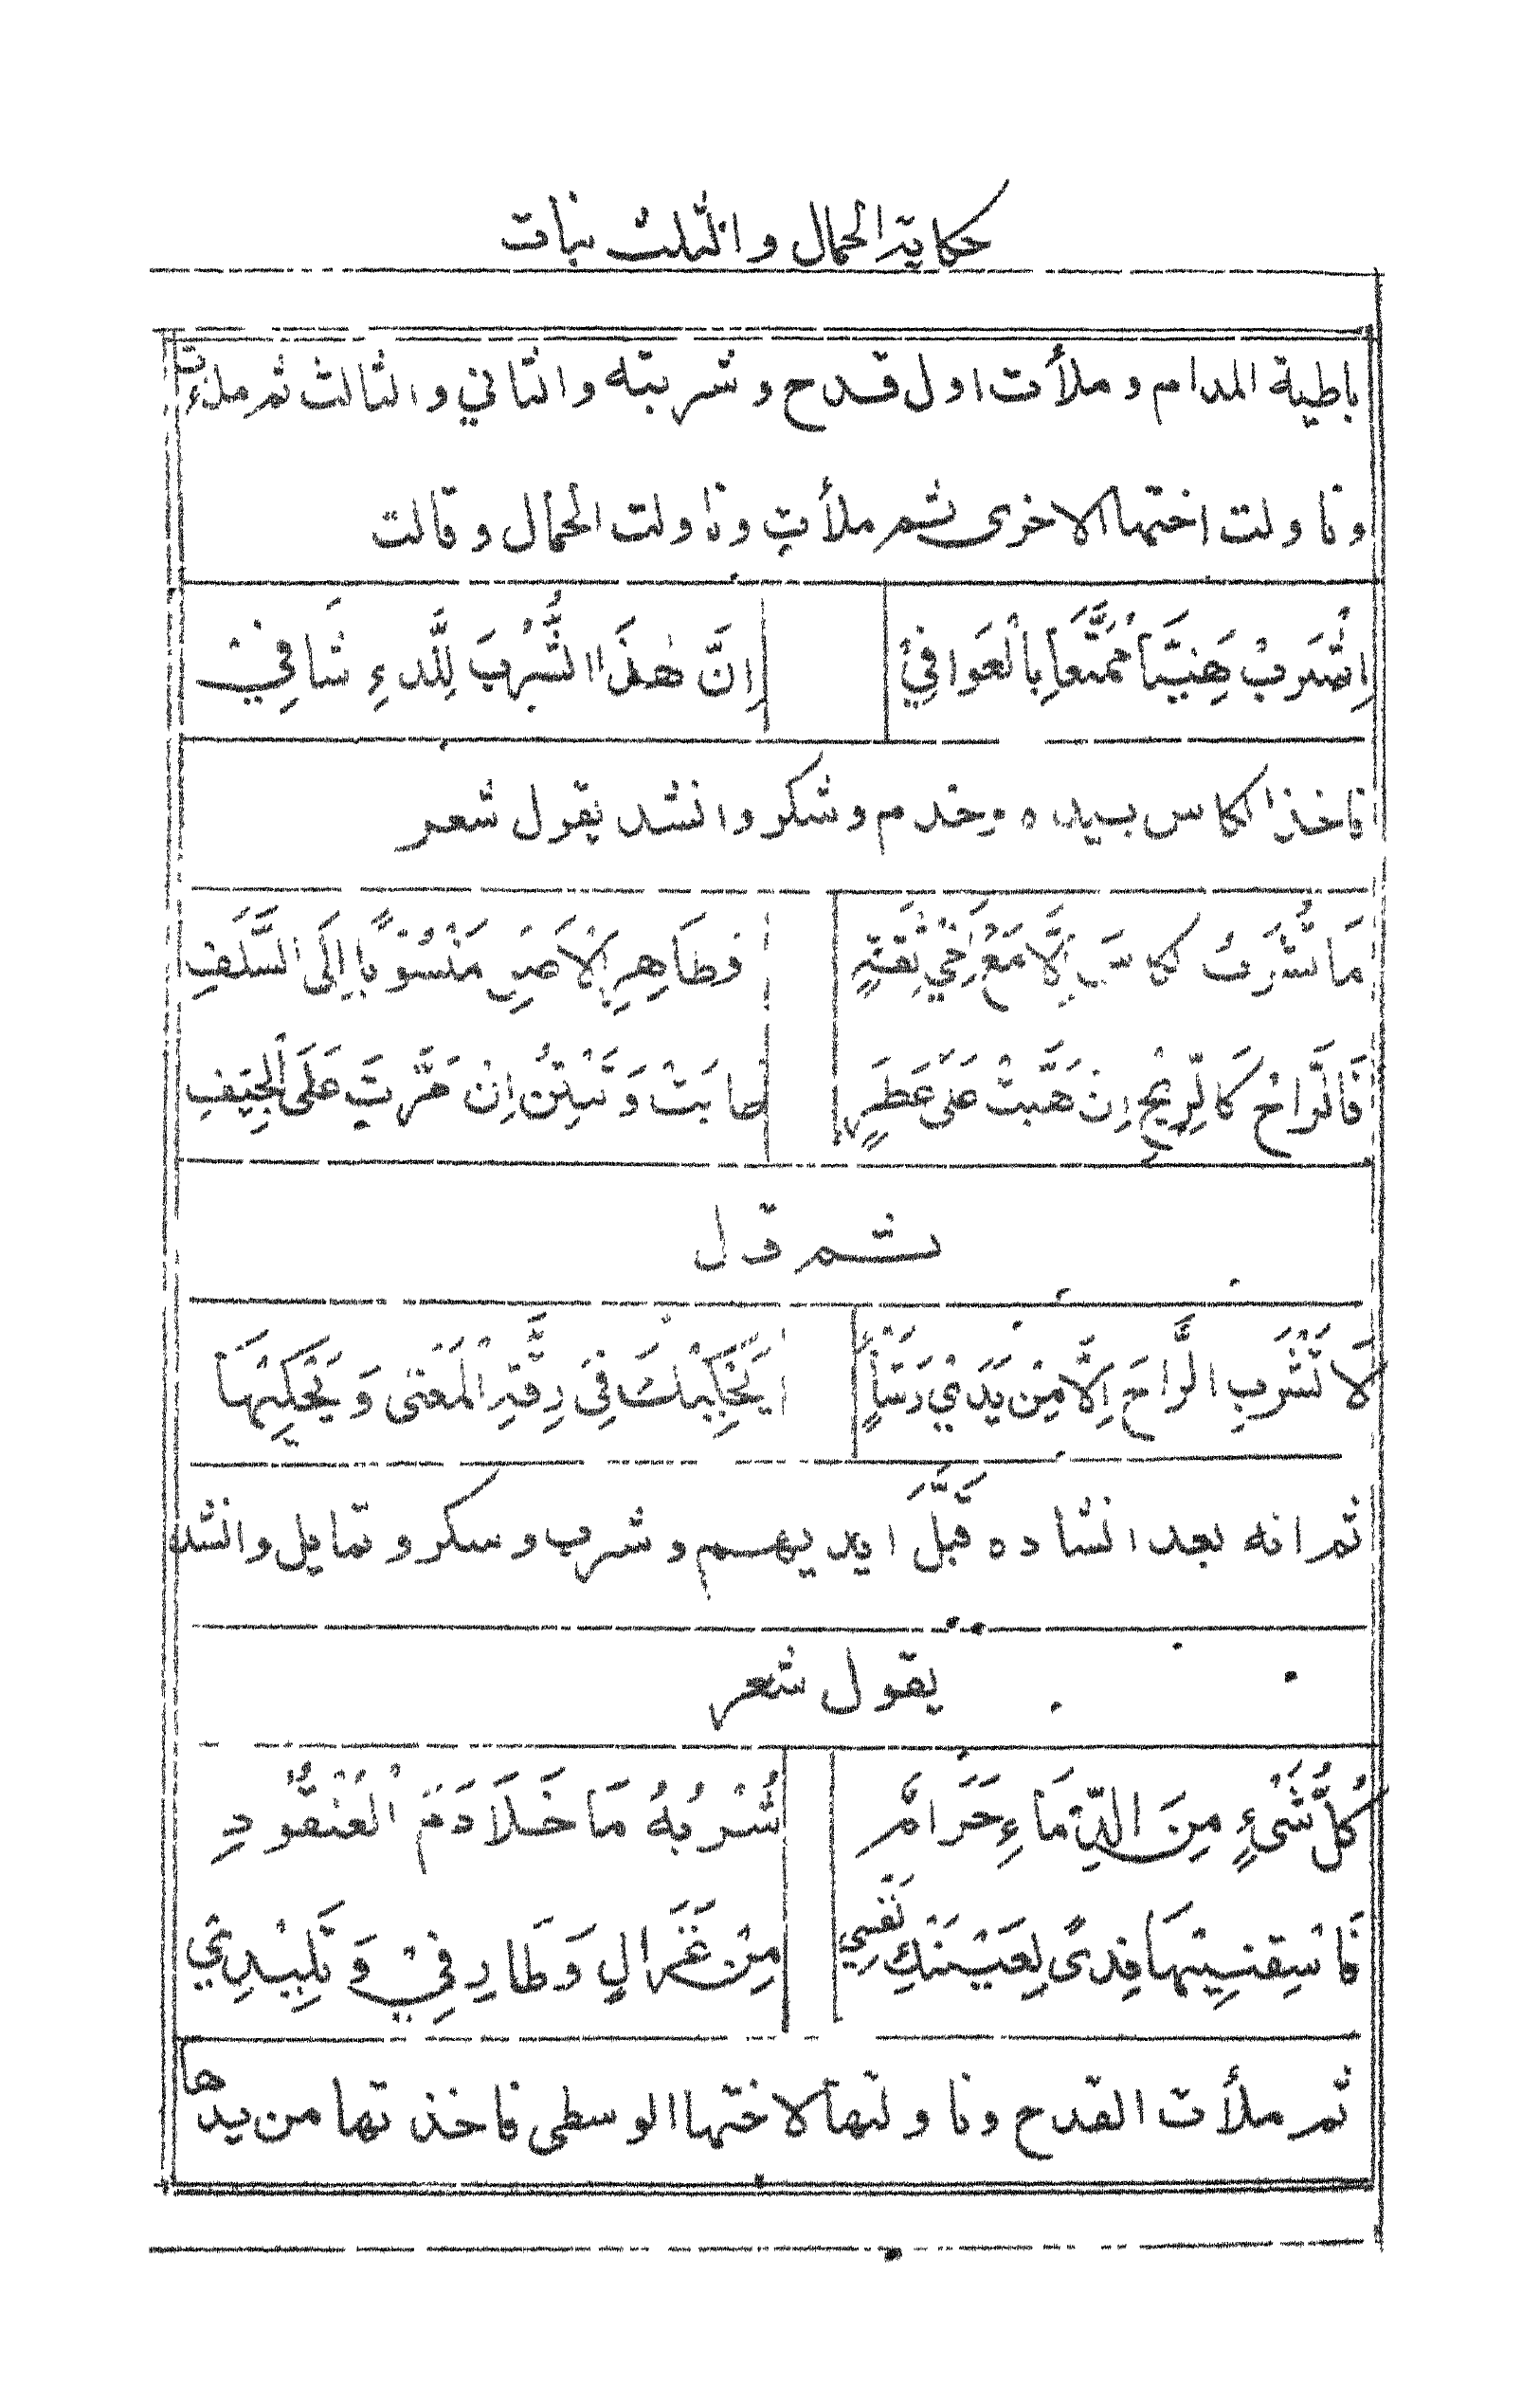 حكاية الحمال والثلث بنات
باطية المدام وملأت اول قدح وشربته والثاني والثالث ثم ملئت
وناولت اختها الاخرى ثم ملأت وناولت الحمال وقالت
اِشْرَبْ هَنِيئًا مُمَتَّعاً بِالْعَوَافِيْ اِنَّ هٰذَا الشُّرْبَ لِلدَّاءِ شَافِيْ
فاخذ الكاس بيده وخدم وشكر وانشد يقول شعر
مَا تَشْرَبُ كاسَ اِلَّا مَعْ اَخِي ثِقَةٍ وطَاهِرِ الْاَصْلِ مَنْسُوْبًا اِلَى السَّلَفِ
فَالرَّاحُ كَالرِّيْحِ اِنْ هَبَّتْ عَلَى عَطَرٍ طابَتْ وَتَنْتِنُ اِنْ مَرَّتْ عَلَى الْجِيَفِ
ثم قال
لَا تَشْرَبِ الرَّاحَ اِلَّا مِنْ يَدَيْ رَشَأٍ يَحْكِيكَ فِي رِقَّةِ الْمَعْنَى وَيَحْكِيْهَا
ثم انه بعد انشاده قَبَّلَ ايديهم وشرب وسكر وتمايل وانشد
يقول شعر
كُلُّ شَيْءٍ مِنَ الدِّمَاءِ حَرَامٌ شُرْبُهُ مَا خَلَا دَمَ الْعُنْقُودِ
فَاسْقِنِيْهَا فِدىً لِعَيْنَيْكِ نَفْسِي مِنْ غَزَالٍ وَطَارِفِيْ وَتَلِيْدِي
ثم ملأت القدح وناولتها لاختها الوسطى فاخذتها من يدها